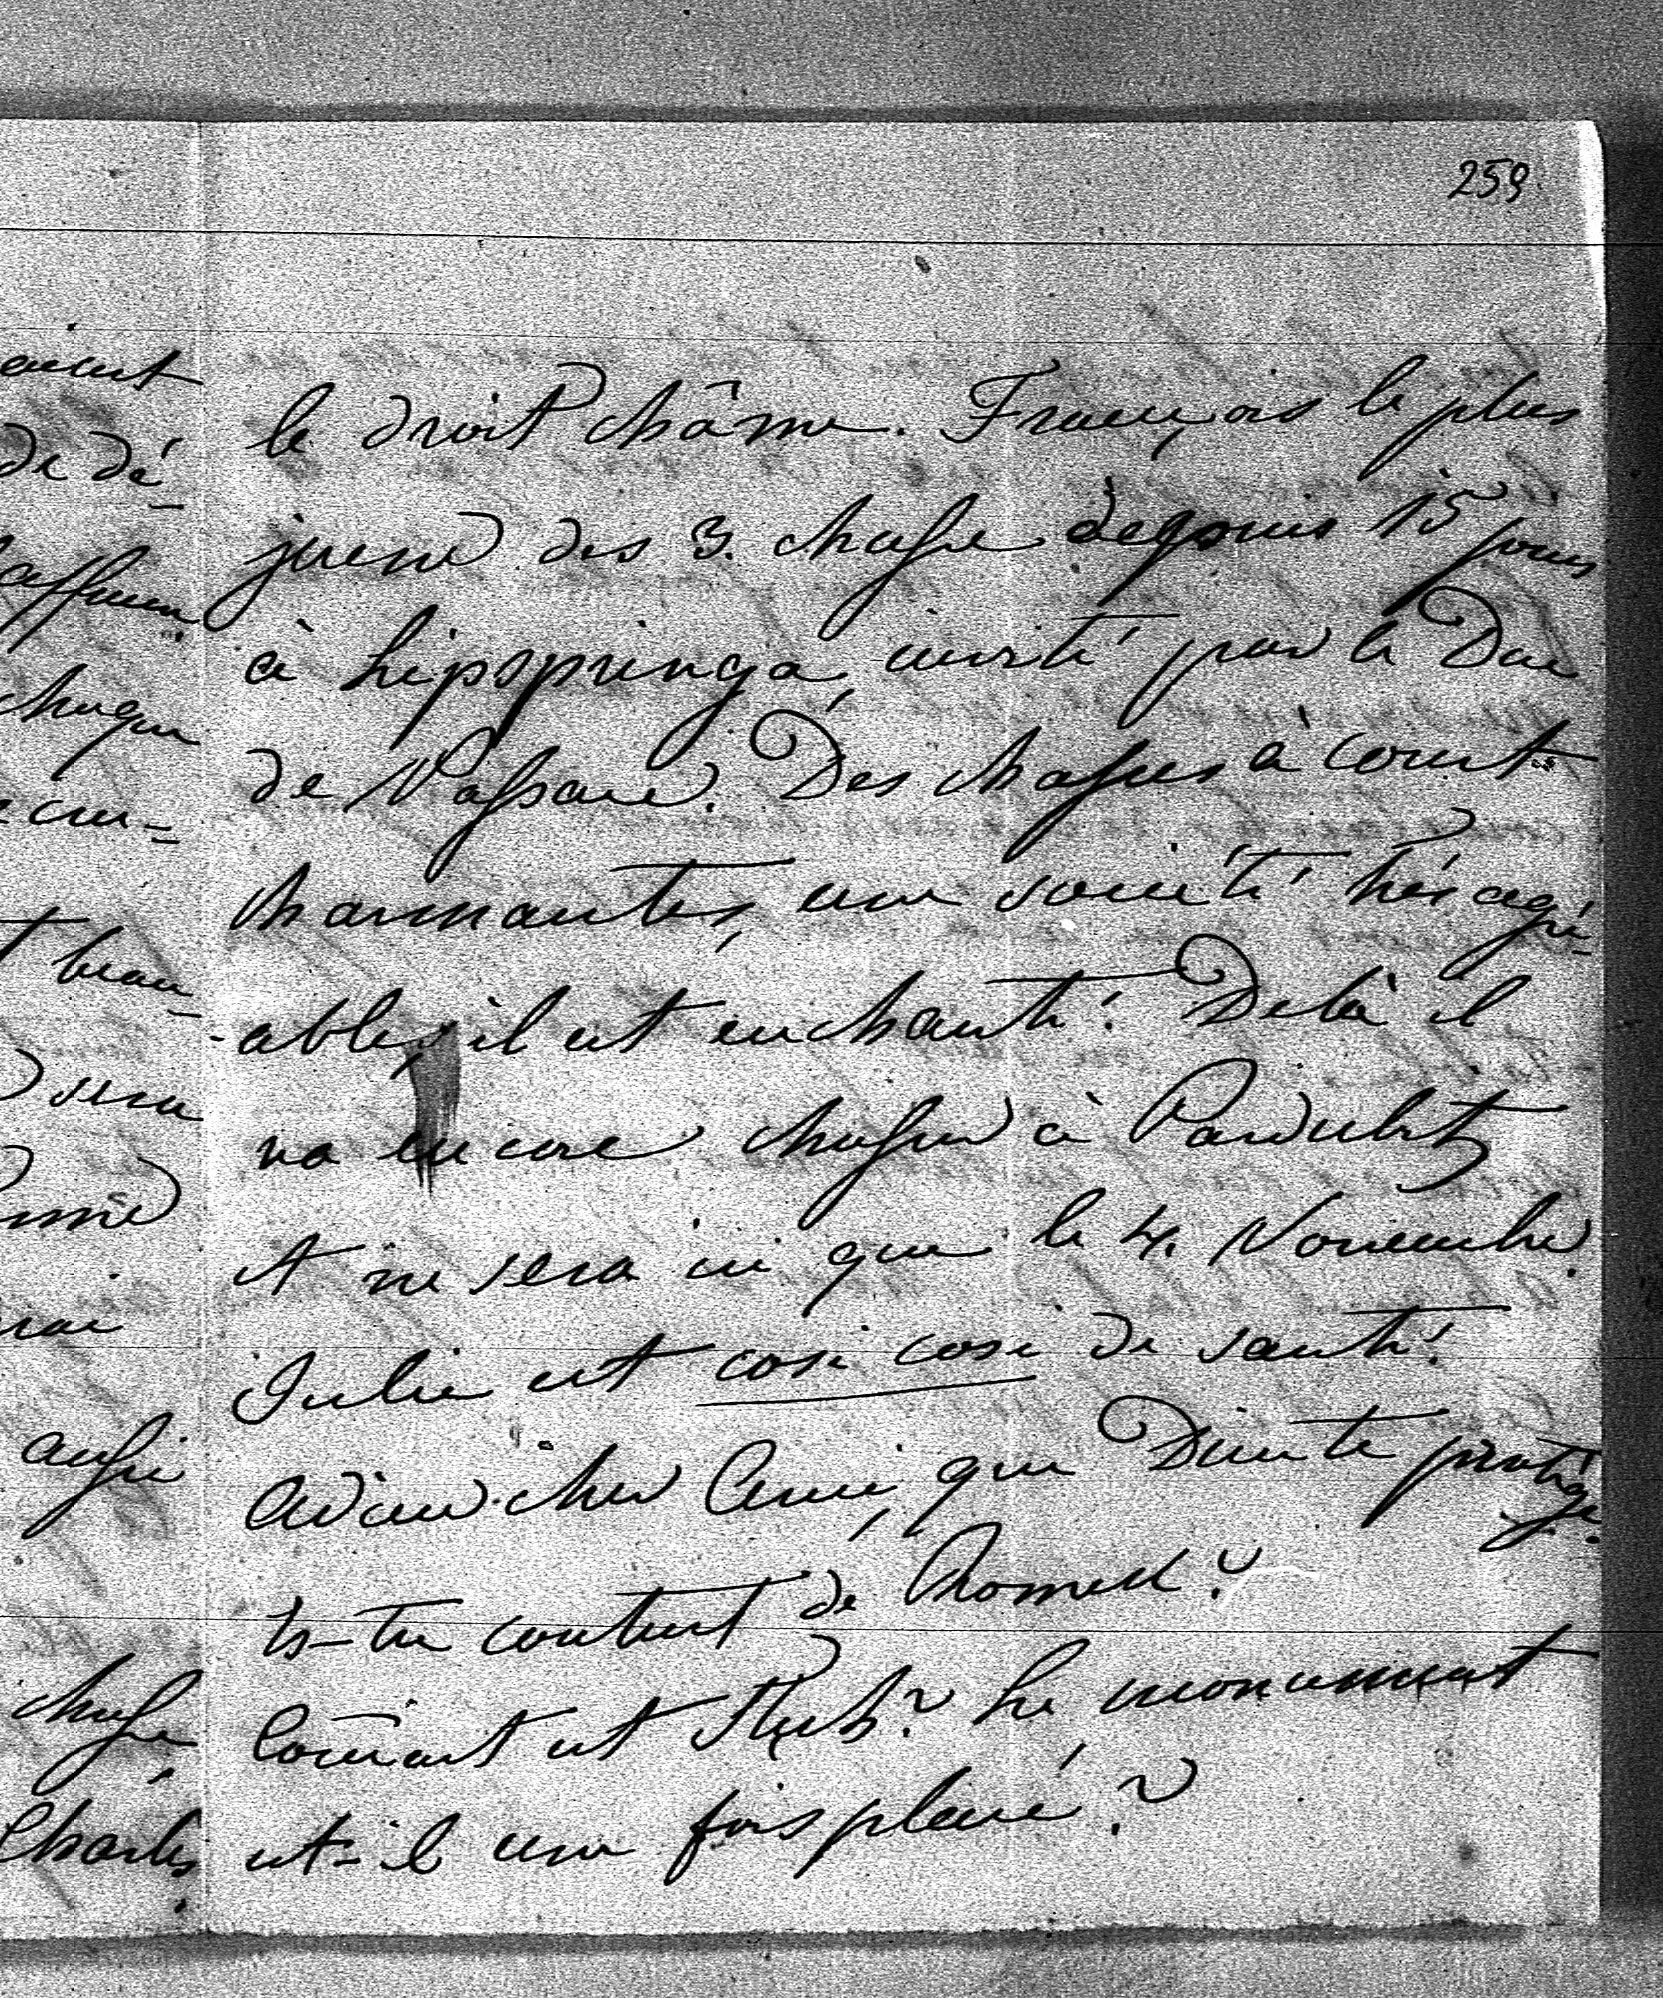 259.
le droit chôme. François le plus
jeune des 3. chasse depuis 15 jours
à Lipspringa, invité par le Duc
de Nassau. Des chasses à court
charmantes, une société très agré-
-able, il est enchanté. Delà il
va encore chasser à Pardubitz
et ne sera ici que le 4. Novembre.
Julie est cosi cosi de santé.
Adieu cher Ami, que Dieu te protège.
Es-tu content de
Comment est Le monument
est-il une fois placé?
aient
de dé-
chaque
beau-
sera
aussi
chasse
Charles.